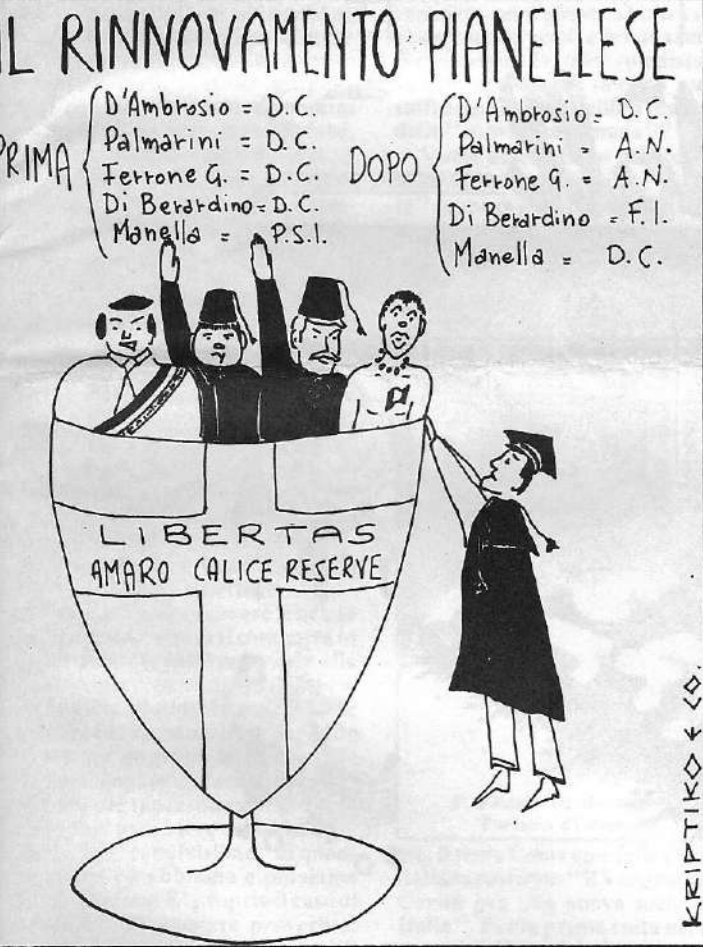 IL RINNOVAMENTO PIANELLESE
PRIMA
D'Ambrosio = D.C.
Palmarini = D.C.
Ferrone G. = D.C.
Di Berardino = D.C.
Manella = P.S.I.
DOPO
D'Ambrosio = D.C.
Palmarini = A.N.
Ferrone G. = A.N.
Di Berardino = F.I.
Manella = D.C.
LIBERTAS
AMARO CALICE RESERVE
KRIPTIKO & CO.